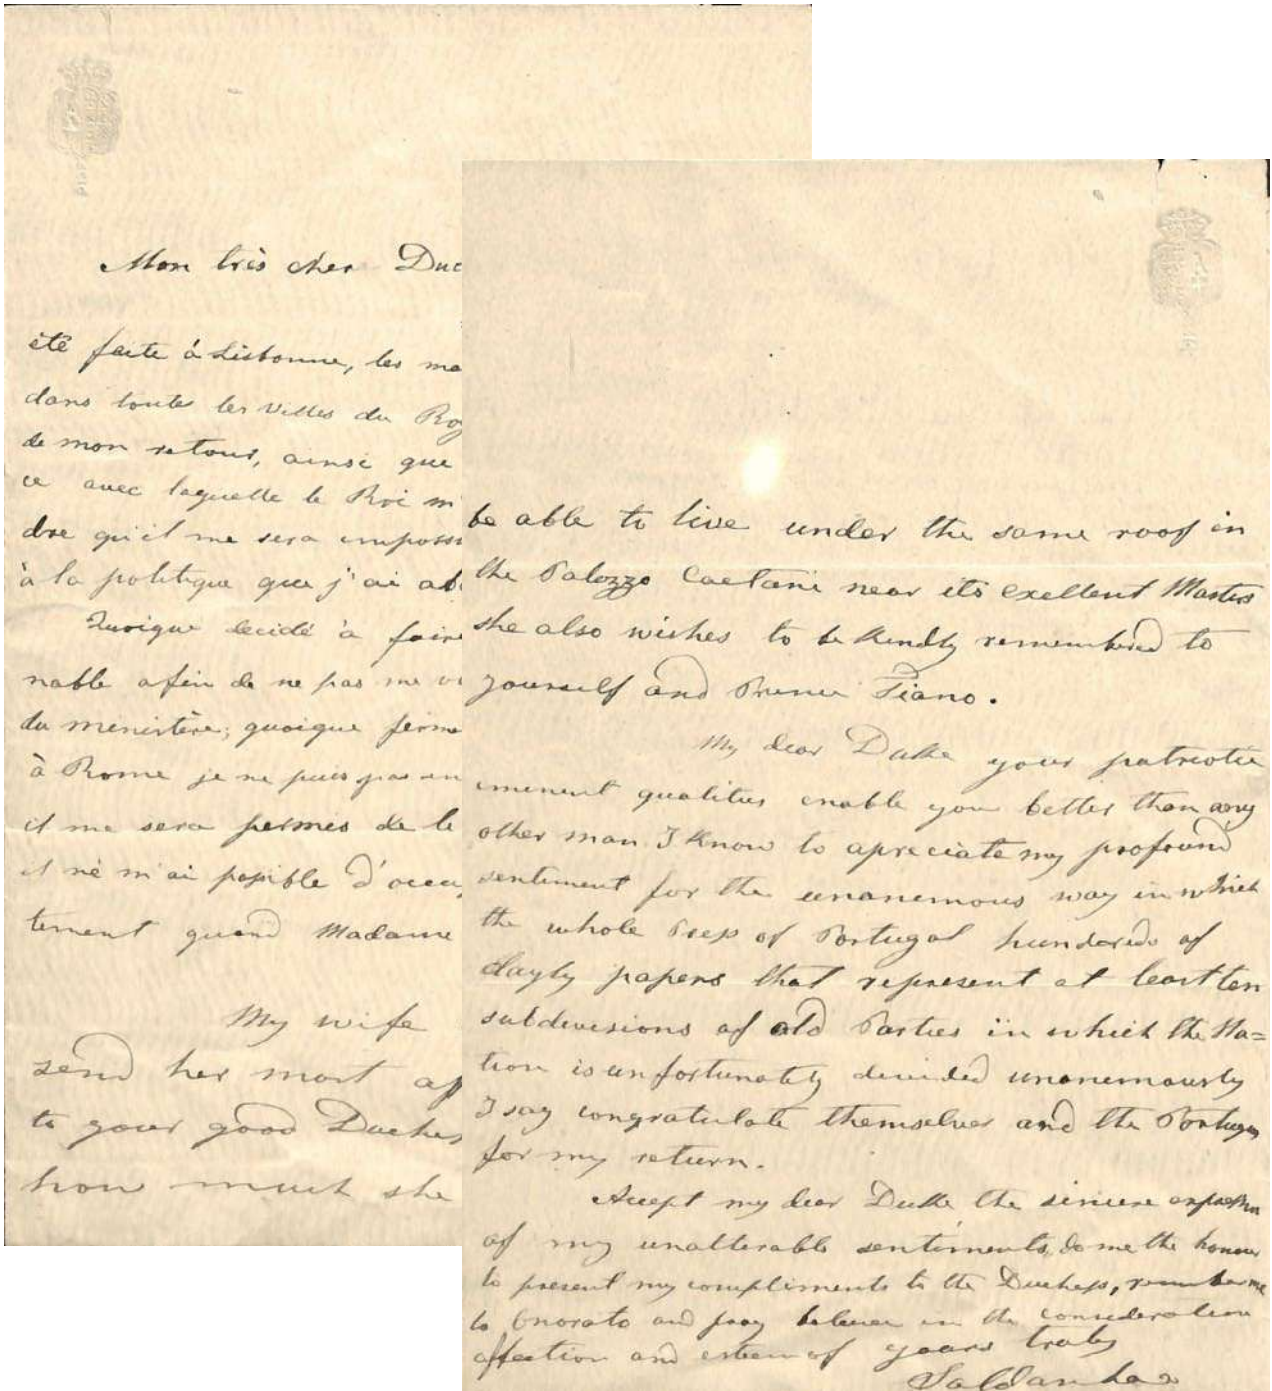 Mon très cher Duc
été faite à Lisbonne, les ma
dans toute les villes du Roy
de mon retour, ainsi que
ce avec laquelle le Roi m
dre qu'il me sera imposs
à la politique que j'ai ab
Quoique decidé à faire
nable afin de ne pas me
du menistère; quoique ferme
à Rome je ne puis pas en
il me sera permes de le
il né m'ai possible d'occu
tement quand Madame
My wife
send her most af
to your good Duches
how much she
be able to live under the same roof in
the Palazzo Caetani near its exellent Masters
she also wishes to be kindly remembered to
yourself and Teano.
My dear Duke your patriotic
eminent qualities enable you better than any
other man I know to apreciate my profound
sentiment for the unanemous way in which
the whole Press of Portugal hundereds of
dayly papers that represent at least ten
subdivisions of old Parties in which the Na=
tion is unfortunately devided unanemously
I say congratulate themselves and the Portugu
for my return.
Accept my dear Duke the sincere expression
of my unalterable sentiments, do me the honour
to present my compliments to the Duchess, remember me
to Onorato and pray believe in the consideration
affection and esteem of yours truly
Saldanha